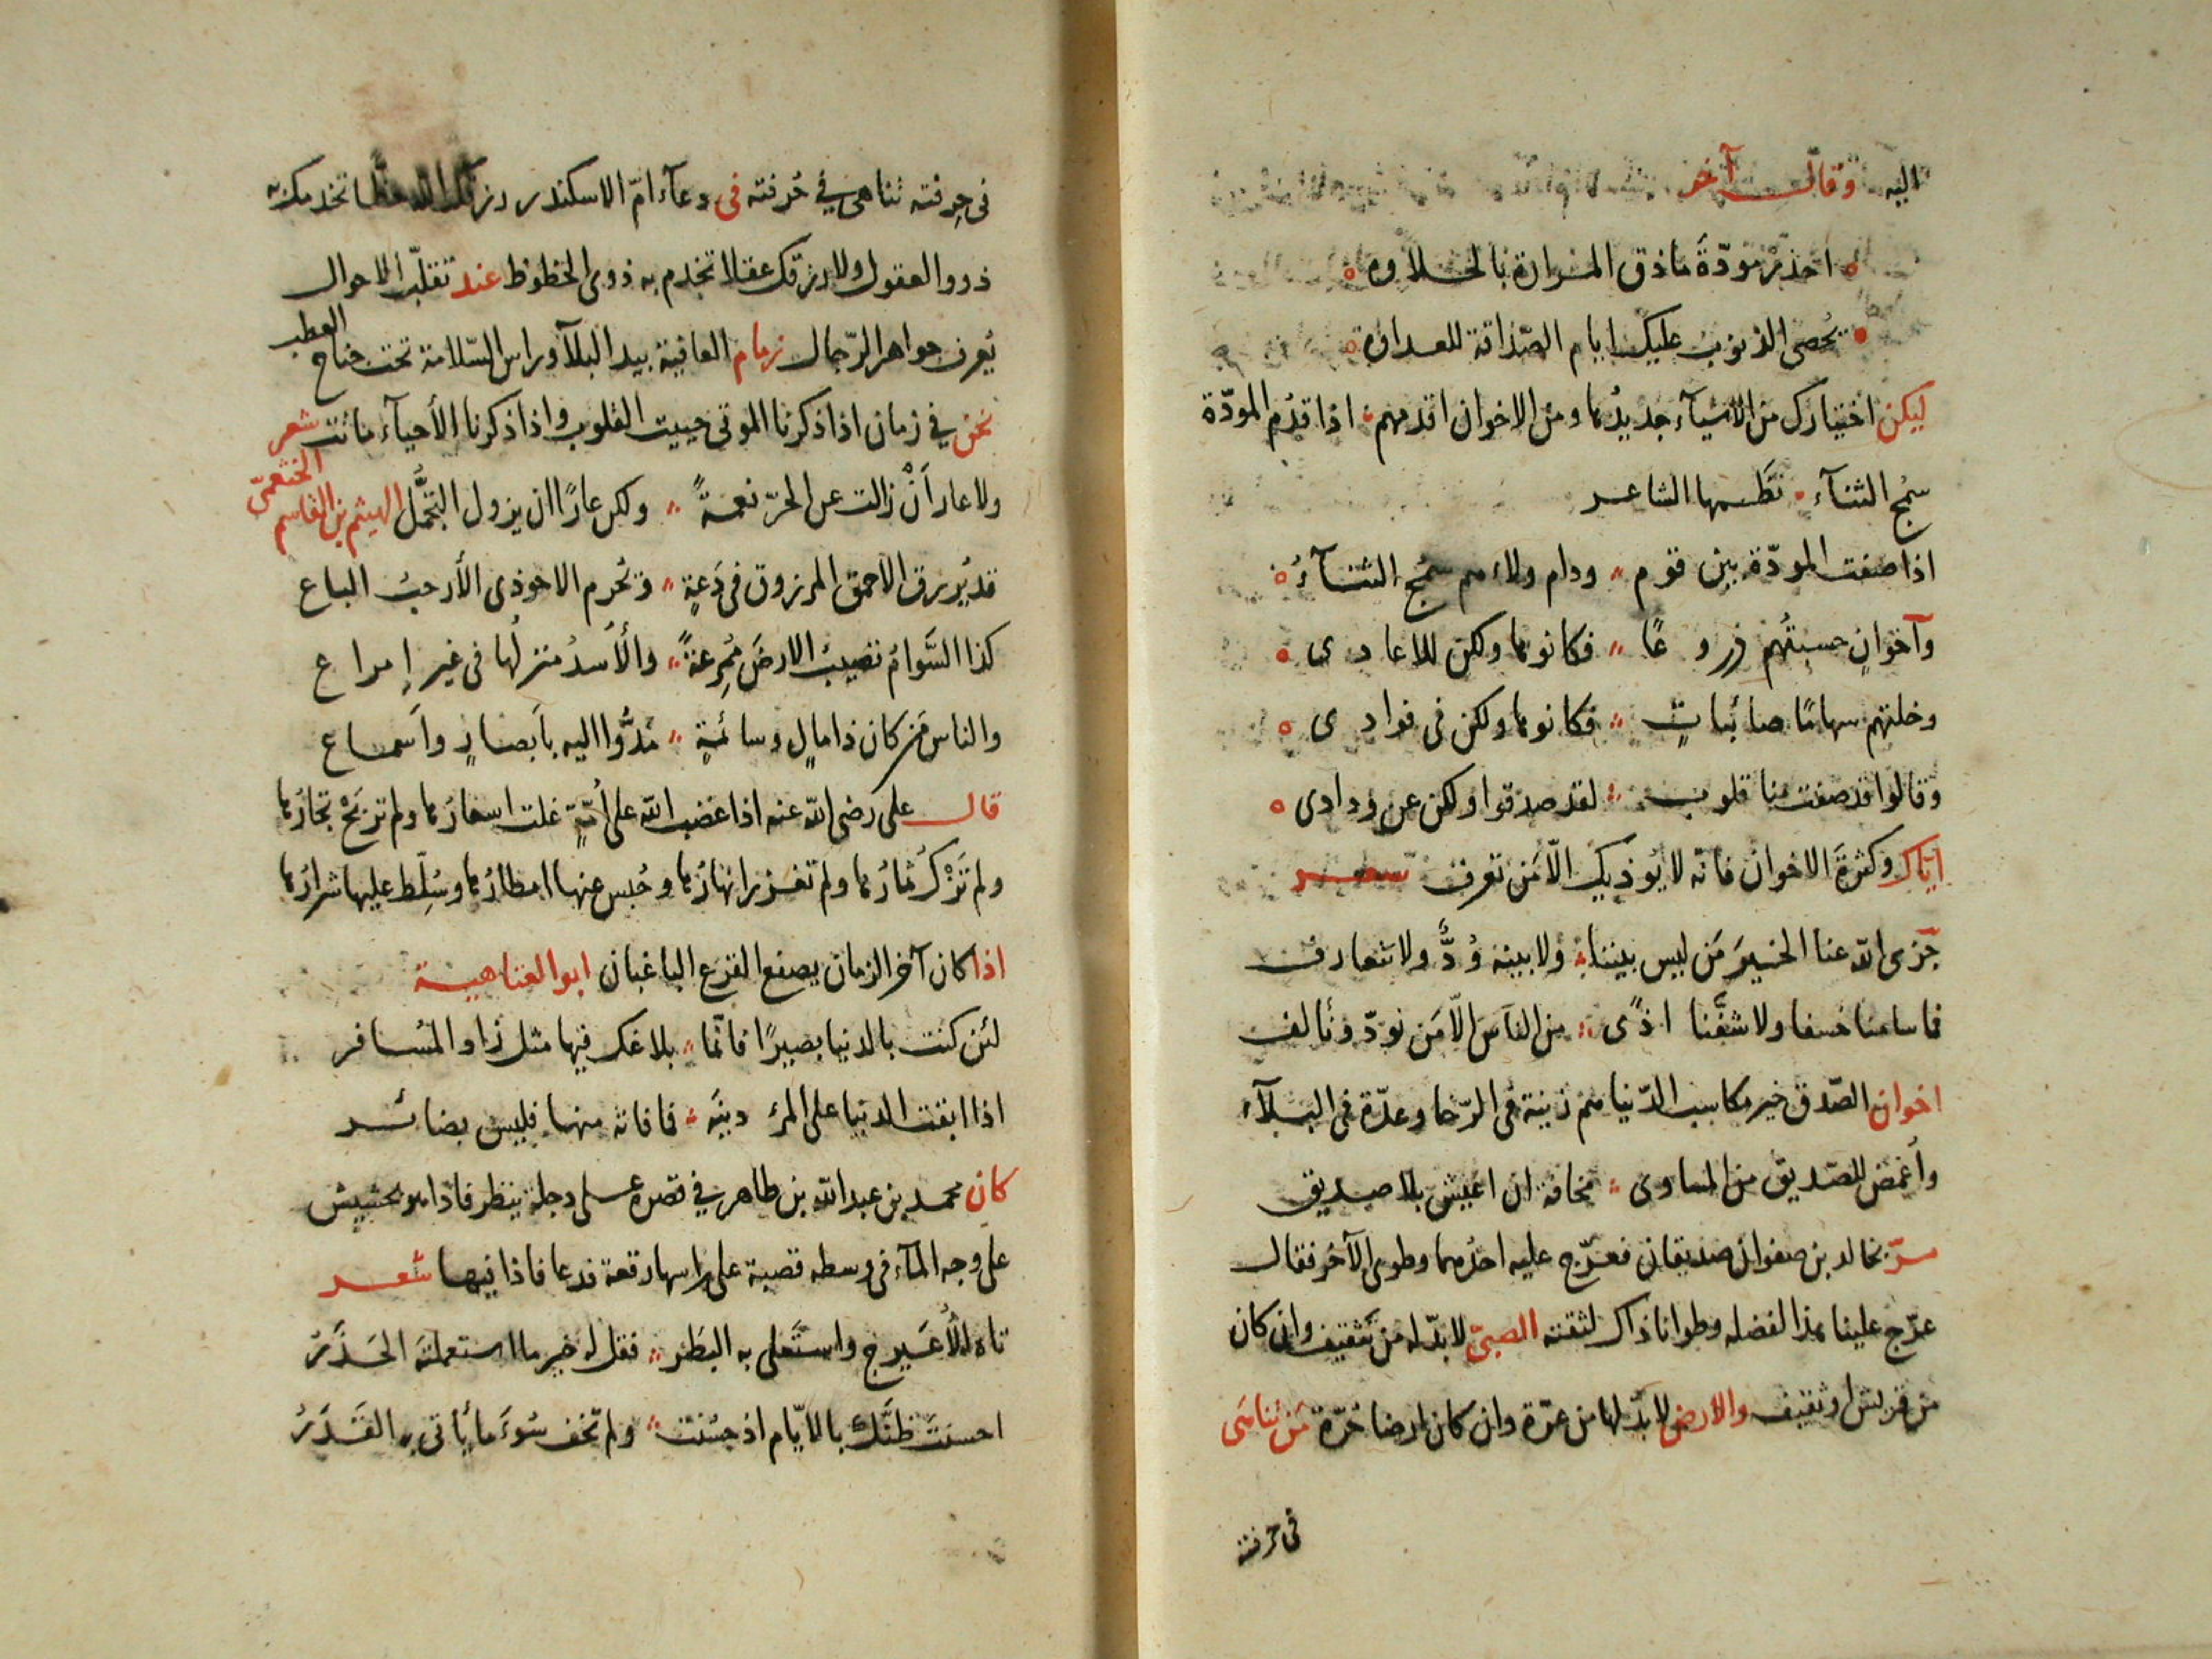 اليه وقال آخر
احذر مودّة ماذق المرارة بالحلاوه
يُحصى الذنوب عليك ايام الصّداقة للعداوة
ليكن اختيارك من الاشيآء جديدُها ومن الاخوان اقدمهم اذا قدُم المودّة
سمُج الثنآء نظمها الشاعر
اذا صفت المودّة بين قوم ودام ولاءهم سمُج الثنآءُ
وآخوانٍ حسبتُهم دروعًا فكانوها ولكن للاعادى
وخلتهم سهامًا صائباتٍ فكانوها ولكن فى فوادى
وقالوا قد صفت منا قلوب لقد صدقوا ولكن عن ودادى
ايّاك وكثرةَ الاخوان فانّه لا يُوذيك الّا مَن تعرف شعر
جَزى الله عنا الخيرَ مَن ليس بيننا ولا بينه وُدٌّ ولا نتعارف
فما سامنا خسفا ولا شفّنا اذًى من الناس الّا مَن نودّ ونألف
اخوان الصّدق خير مكاسب الدّنيا هم زينة فى الرّخا وعدّة فى البلآء
وأغمض للصّديق من المساوى مخافة ان اعيش بلا صديق
مرّ بخالد بن صفوان صديقان فعرّج عليه احدُهما وطوى الآخر فقال
عرّج علينا هذا لفضله وطوانا ذاك لثقته الصبىّ لا بدّ له من تثقيف وان كان
من قريش او ثقيف والارض لا بدّ لها من عرّة وان كان ارضا حُرّة مَن تناهَى
فى حرفته
فى حِرفته تناهى فى حُرفته فى دعآء امّ الاسكندر رزقك الله حظّا تخدمك به
ذووا العقول ولا رزقك عقلا تخدم به ذوى الحظوظ عند تقلّب الاحوال
يُعرف جواهر الرّجال زمام العافية بيد البلآء وراس السّلامة تحت جناح العطب
نحن فى زمان اذا ذكرنا الموتى حييت القلوب واذا ذكرنا الأحيآء ماتت شعر
ولا عار أنْ زالت عن الحرّ نعمةً ولكن عارًا ان يزول التجمُّل الهيثم بن القاسم الخثعمىّ
قد يُرزق الاحمق المرزوق فى دَعةٍ ويُحرم الاحوذى الأرحبُ الباع
كذا السَّوامُ تصيب الارضَ مُمرِعةً والأُسدُ منزلُها فى غير إمراع
والناس مَن كان ذا مالٍ وسائمةٍ مَدُّوا اليه بأبصارٍ وأسماع
قال على رضى الله عنه اذا غضب الله على أمّةٍ غلت اسعارُها ولم تربَحْ تجارُها
ولم تَزْكُ ثمارُها ولم تغزر انهارُها وحُبس عنها امطارُها وسُلّط عليها شرارُها
اذا كان آخر الزمان يصفع القرع الباغبان ابو العتاهية
لئن كنت بالدنيا بصيرًا فانّما بلاغك فيها مثل زاد المُسافر
اذا ابقت الدنيا على المرء دينَه فما فاته منها فليس بضائر
كان محمد بن عبد الله بن طاهر فى قصره على دجلة ينظر فاذا هو بحشيش
على وجه المآء فى وسطه قصبة على راسها رقعة فدعا فاذا فيها شعر
تاه الأعَيرج واستَعلى به البَطَر فقل له خير ما استعملتَه الحَذَرُ
احسنتَ ظنَّك بالايّام اذ حسُنت ولم تخف سُوءَ ما يأتى به القَدَرُ